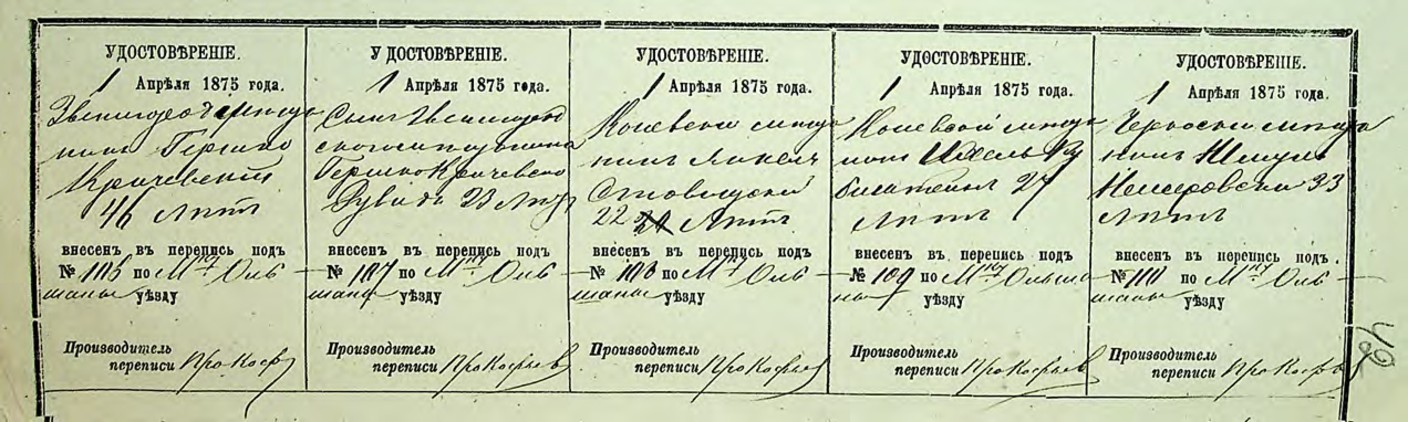 УДОСТОВѢРЕНІЕ.
1 Апрѣля 1875 года.
Звенигородскій мѣща
нинъ Гершко
Кричевскій
46 лѣтъ
внесенъ въ перепись подъ
№ 106 по Мѣ Оль
шаны уѣзду
Производитель
переписи Прокофьев
УДОСТОВѢРЕНІЕ.
1 Апрѣля 1875 года.
Сынъ Звенигород
скаго мѣщанина
Гершко Кричевско
23 лѣтъ
внесенъ въ перепись подъ
№ 107 по Мѣ Оль
шаны уѣзду
Производитель
переписи Прокофьев
УДОСТОВѢРЕНІЕ.
1 Апрѣля 1875 года.
Каневскій мѣща
нинъ
22 лѣтъ
внесенъ въ перепись подъ
№ 108 по Мѣ Оль
шаны уѣзду
Производитель
переписи Прокофьев
УДОСТОВѢРЕНІЕ.
1 Апрѣля 1875 года.
Каневскій мѣща
нинъ
27
лѣтъ
внесенъ въ перепись подъ
№ 109 по Мѣ Ольша
ны уѣзду
Производитель
переписи Прокофьев
УДОСТОВѢРЕНІЕ.
1 Апрѣля 1875 года.
мѣща
нинъ Шмуль
33
лѣтъ
внесенъ въ перепись подъ
№ 110 по Мѣ Оль
шаны уѣзду
Производитель
переписи Прокофьев